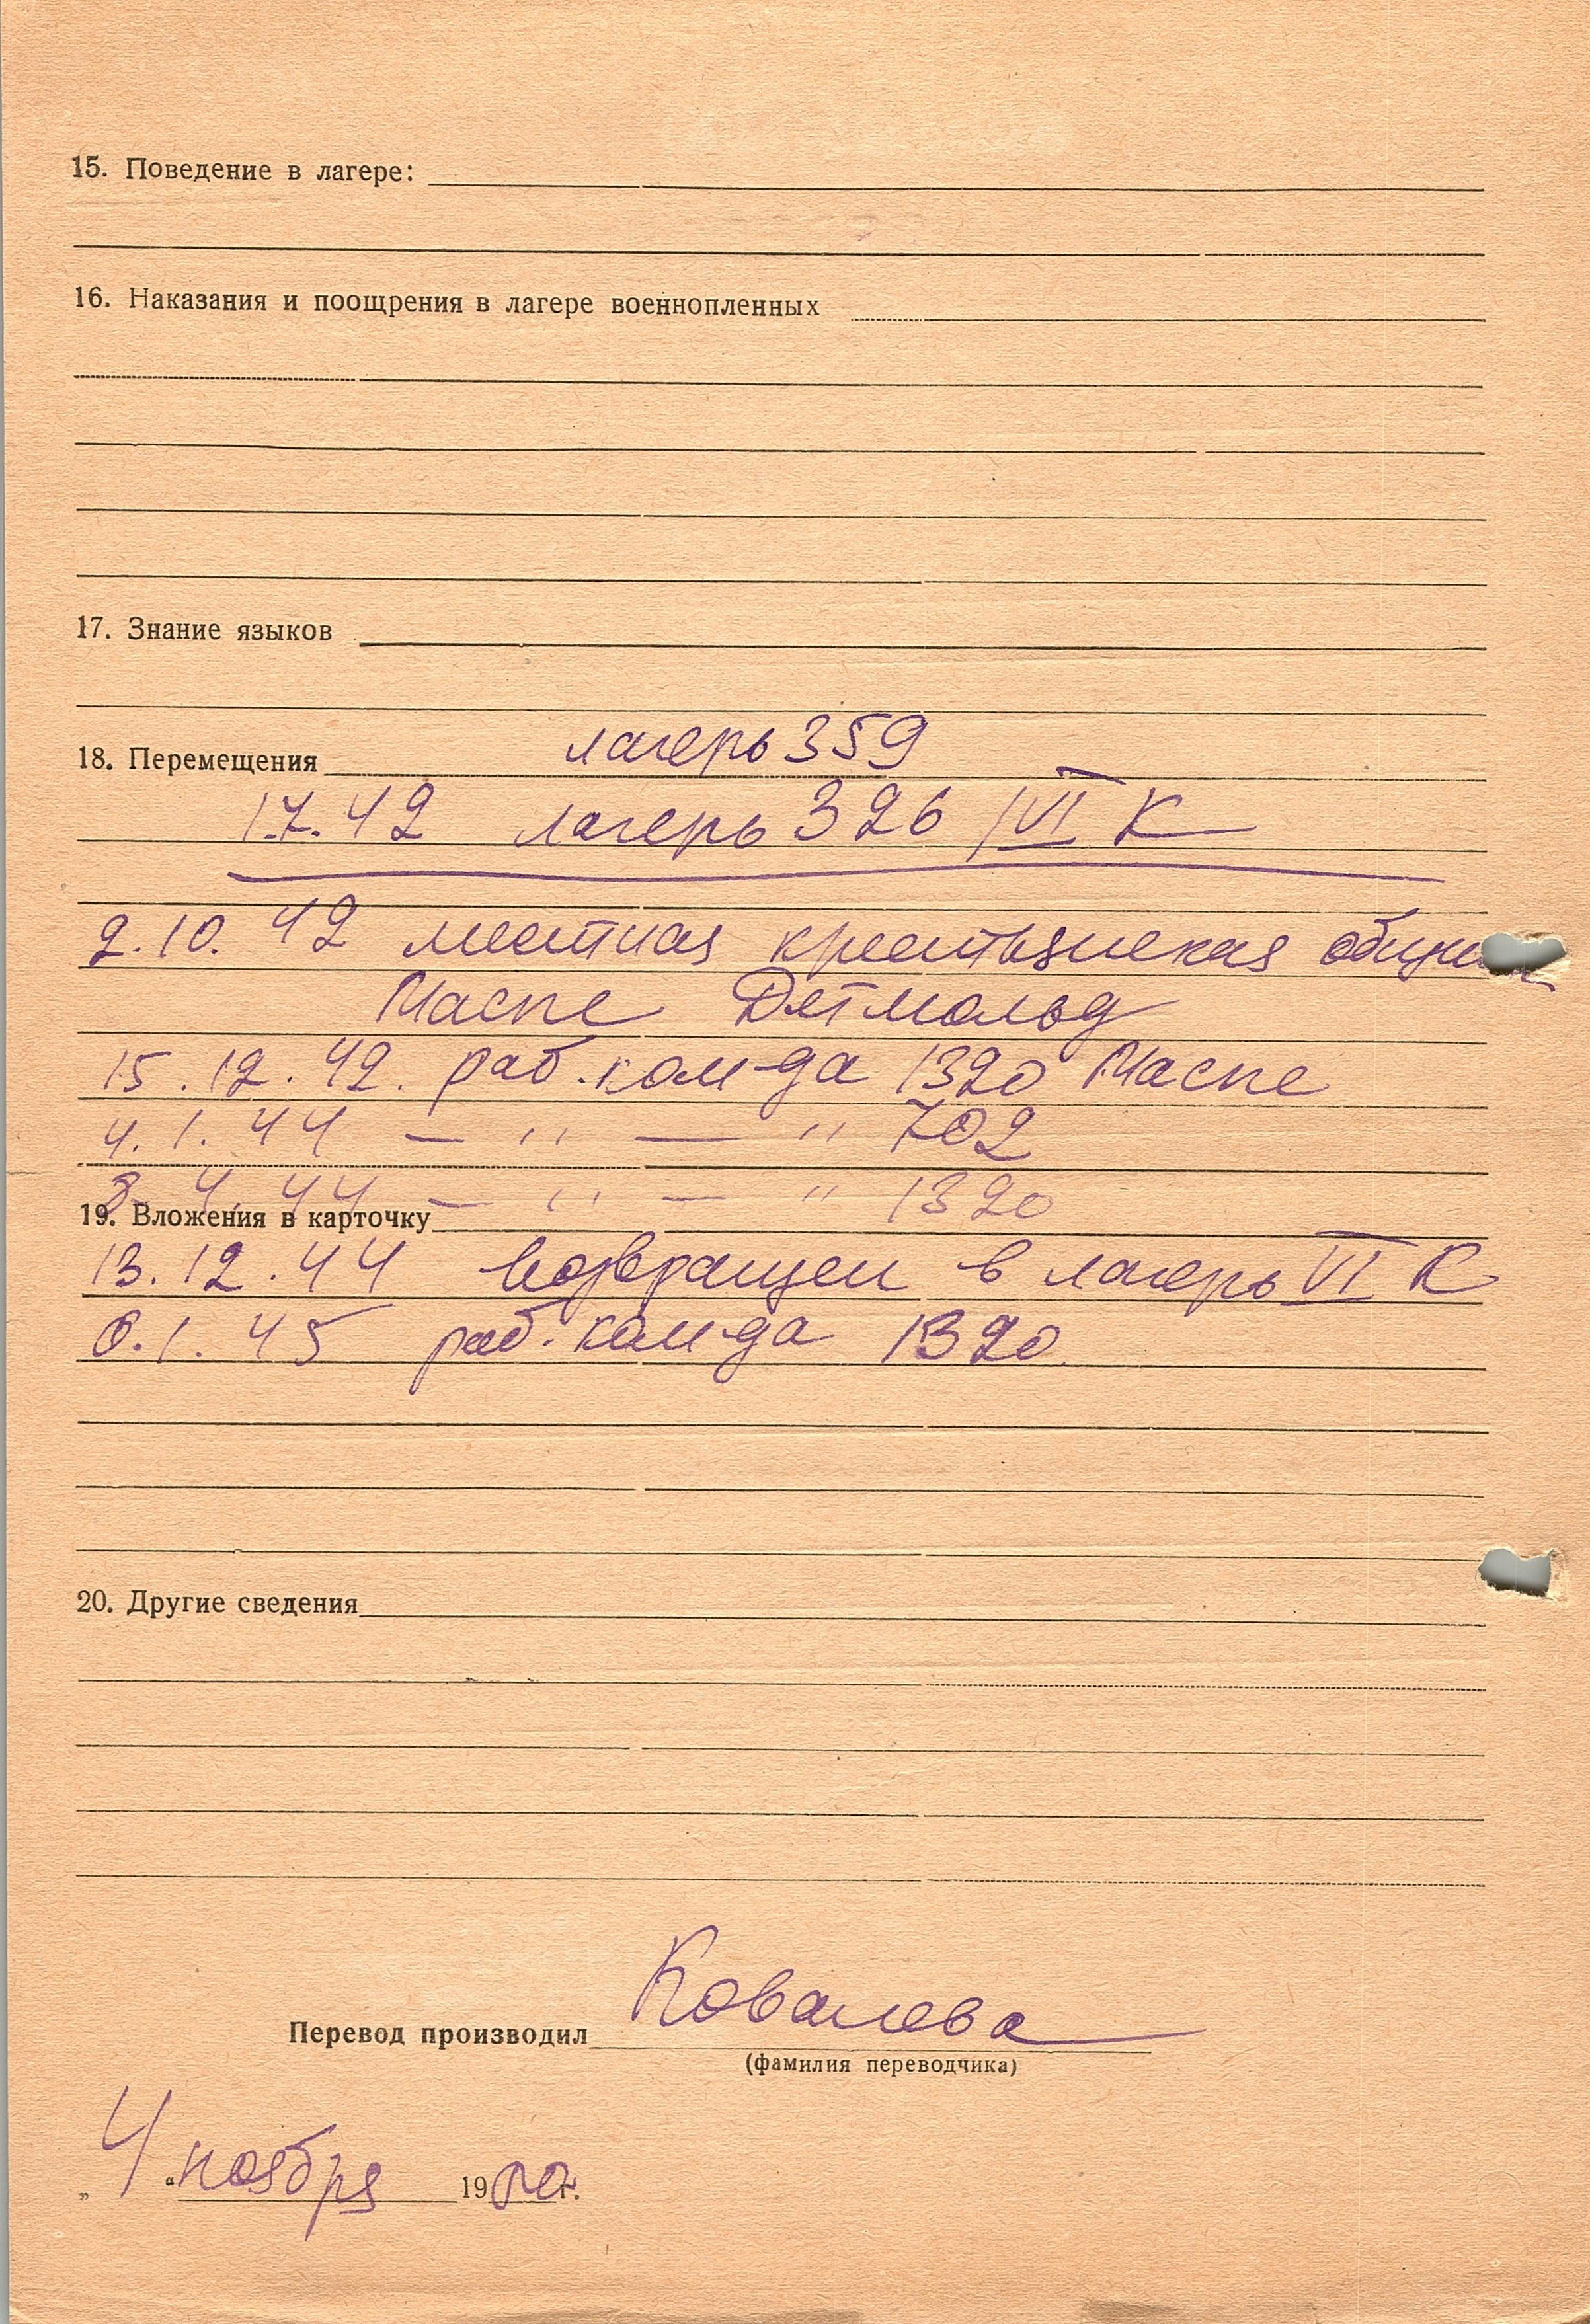 15. Поведение в лагере:
16. Наказания и поощрения в лагере военнопленных
17. Знание языков
18. Перемещения лагерь 359
1.7.42 лагерь 326 /VI К
2.10.42 местная крестьянская
Маспе Детмольд
15.12.42. раб. ком-да 1320 Маспе
4.1.44 — " — " 702
8.4.44 — " — " 1320
19. Вложения в карточку
13.12.44 возвращен в лагерь VI К
1.45 раб. ком-да 1320
20. Другие сведения
Перевод производил Ковалева
(фамилия переводчика)
„ 4 “ ноября 19 г.